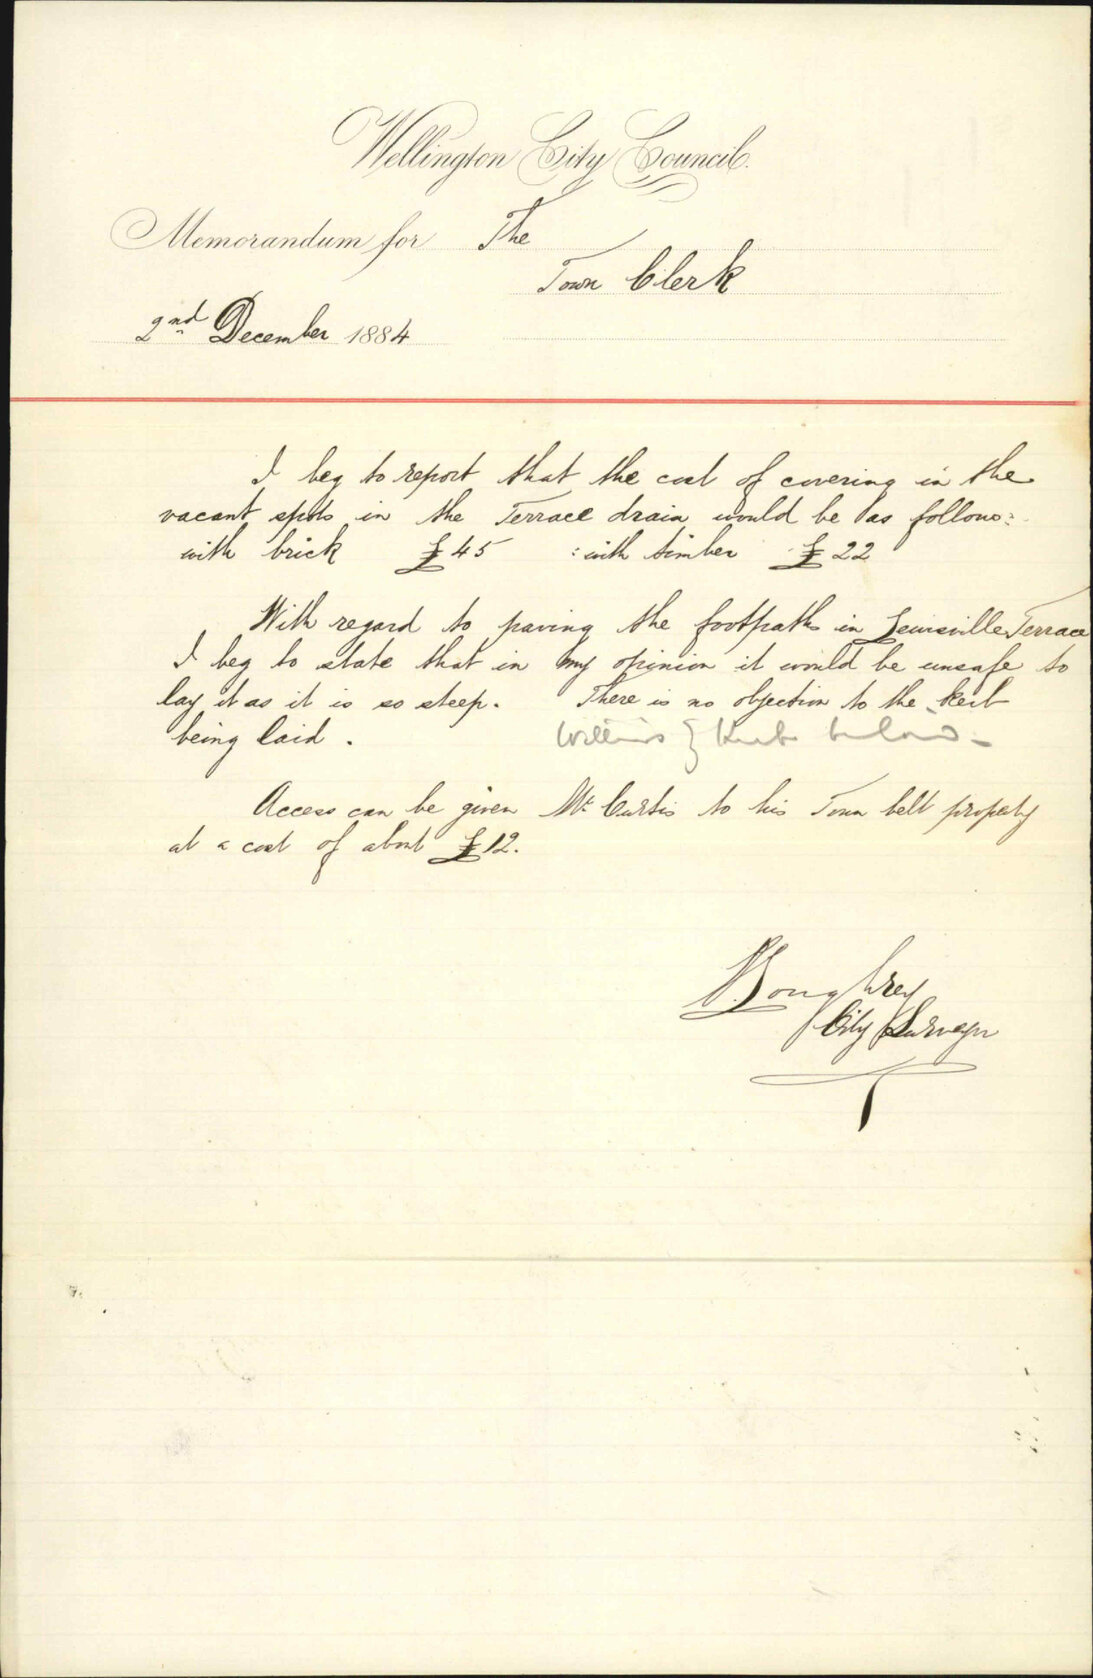 Wellington City Council.
Memorandum for The
Town Clerk
2nd December 1884
I beg to report that the cost of covering in the
vacant spots in the Terrace drain would be as follows:
with brick £45 : with timber £22
With regard to paving the footpath in Lewisville Terrace
I beg to state that in my opinion it would be unsafe to
lay it as it is so steep. There is no objection to the kerb
being laid.
Access can be given Mr Curtis to his Town belt property
at a cost of about £12.
Loughrey
City Surveyor